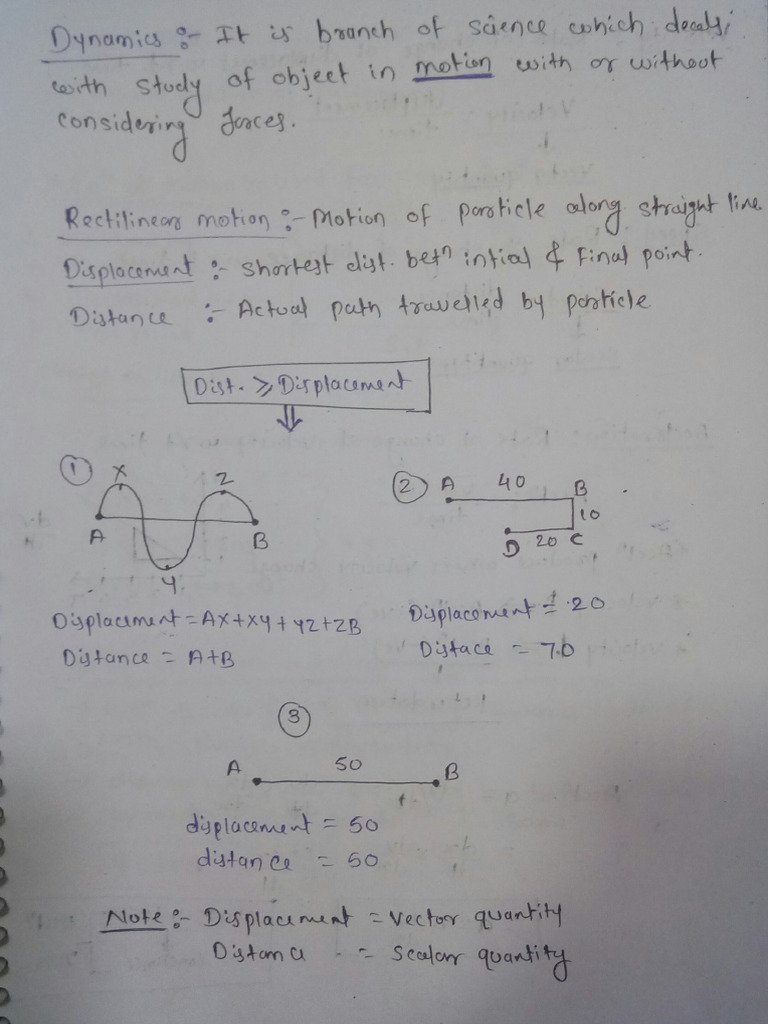 Dynamics :- It is branch of science which deals
with study of object in motion with or without
considering forces.
Rectilinear motion :- Motion of particle along straight line
Displacement :- Shortest dist. betn intial & Final point.
Distance :- Actual path travelled by particle
Dist. ⩾ Displacement
⇓
① X Z
A B
Y
Displacement = AX+XY+YZ+ZB
Distance = A+B
② A 40 B
10
D 20 C
Displacement = 20
Distace = 70
③
A 50 B
displacement = 50
distance = 50
Note :- Displacement = Vector quantity
Distance = Scalar quantity